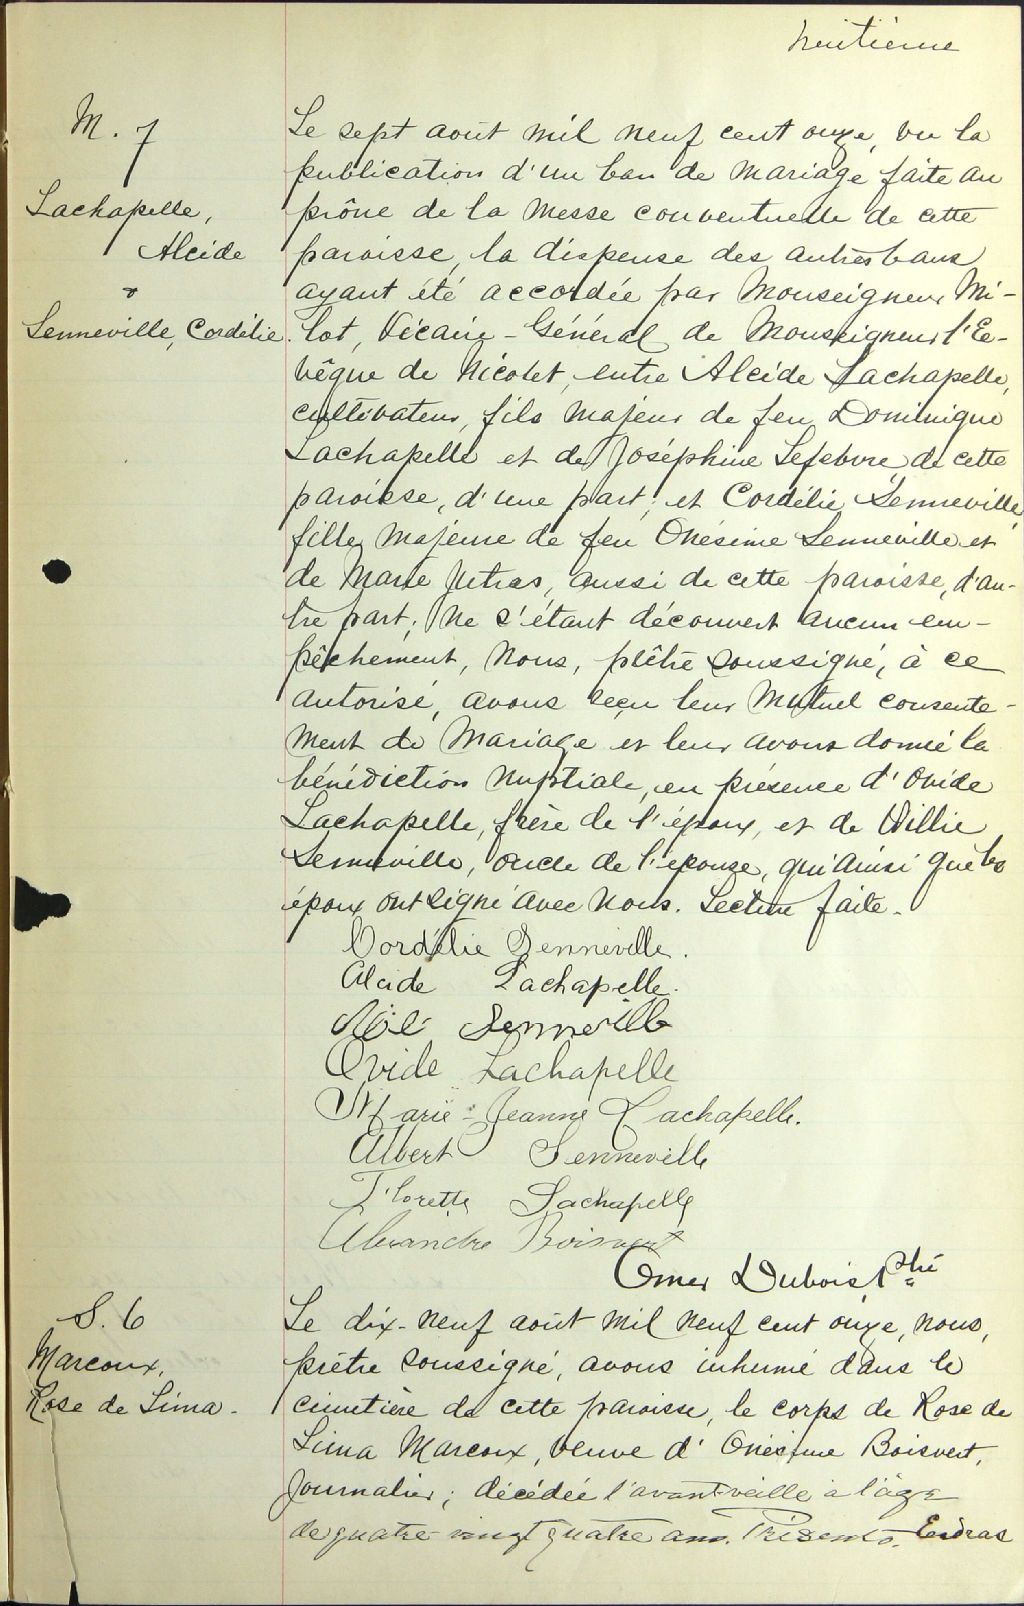 huitième
M. 7
Lachapelle,
Alcide
&
Senneville, Cordélie.
Le sept août mil neuf cent onze, vu la
publication d'un ban de mariage faite au
prône de la messe conventuelle de cette
paroisse, la dispense des autres bans
ayant été accordée par Monseigneur Mi-
lot, Vicaire-Général de Monseigneur l'E-
vêque de Nicolet, entre Alcide Lachapelle,
cultivateur, fils majeur de feu Dominique
Lachapelle et de Joséphine Lefebvre de cette
paroisse, d'une part; et Cordélie Senneville,
fille majeure de feu Onésime Senneville et
de Marie Jutras, aussi de cette paroisse, d'au-
tre part; ne s'étant découvert aucun em-
pêchement, nous, prêtre soussigné, à ce
autorisé, avons reçu leur mutuel consente-
ment de mariage et leur avons donné la
bénédiction nuptiale, en présence d'Ovide
Lachapelle, frère de l'époux, et de Willie
Senneville, oncle de l'épouse, qui ainsi que les
époux ont signé avec nous. Lecture faite.
Cordélie Senneville.
Alcide Lachapelle.
Senneville
Ovide Lachapelle
Marie-Jeanne Lachapelle.
Albert Senneville
Florette Lachapelle
Alexandre Boisvert
Omer Dubois, Ptre
S. 6
Marcoux,
Rose de Lima.
Le dix-neuf août mil neuf cent onze, nous,
prêtre soussigné, avons inhumé dans le
cimetière de cette paroisse, le corps de Rose de
Lima Marcoux, veuve d'Onésime Boisvert,
journalier; décédée l'avant-veille à l'âge
de quatre-vingt quatre ans. Présents. Esdras